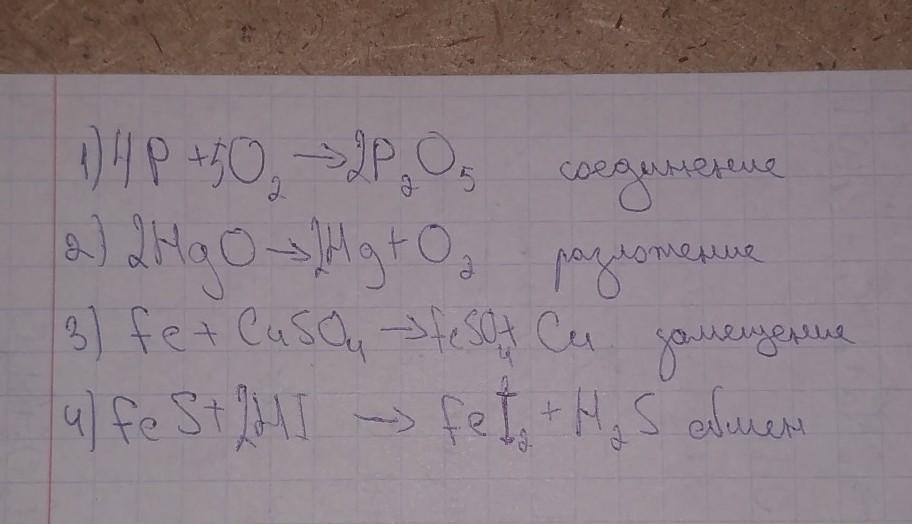 1) 4P + 5O₂ → 2P₂O₅ соединение
2) 2HgO → 2Hg + O₂ разложение
3) Fe + CuSO₄ → FeSO₄ + Cu замещение
4) FeS + 2HI → FeI₂ + H₂S обмен